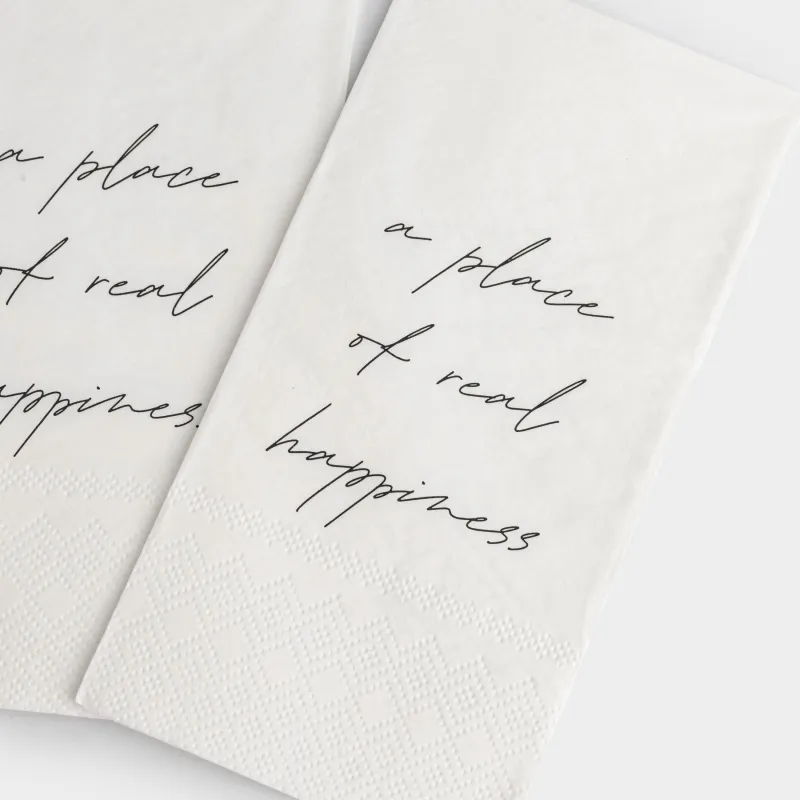 a place
of real
happines
a place
of real
happiness